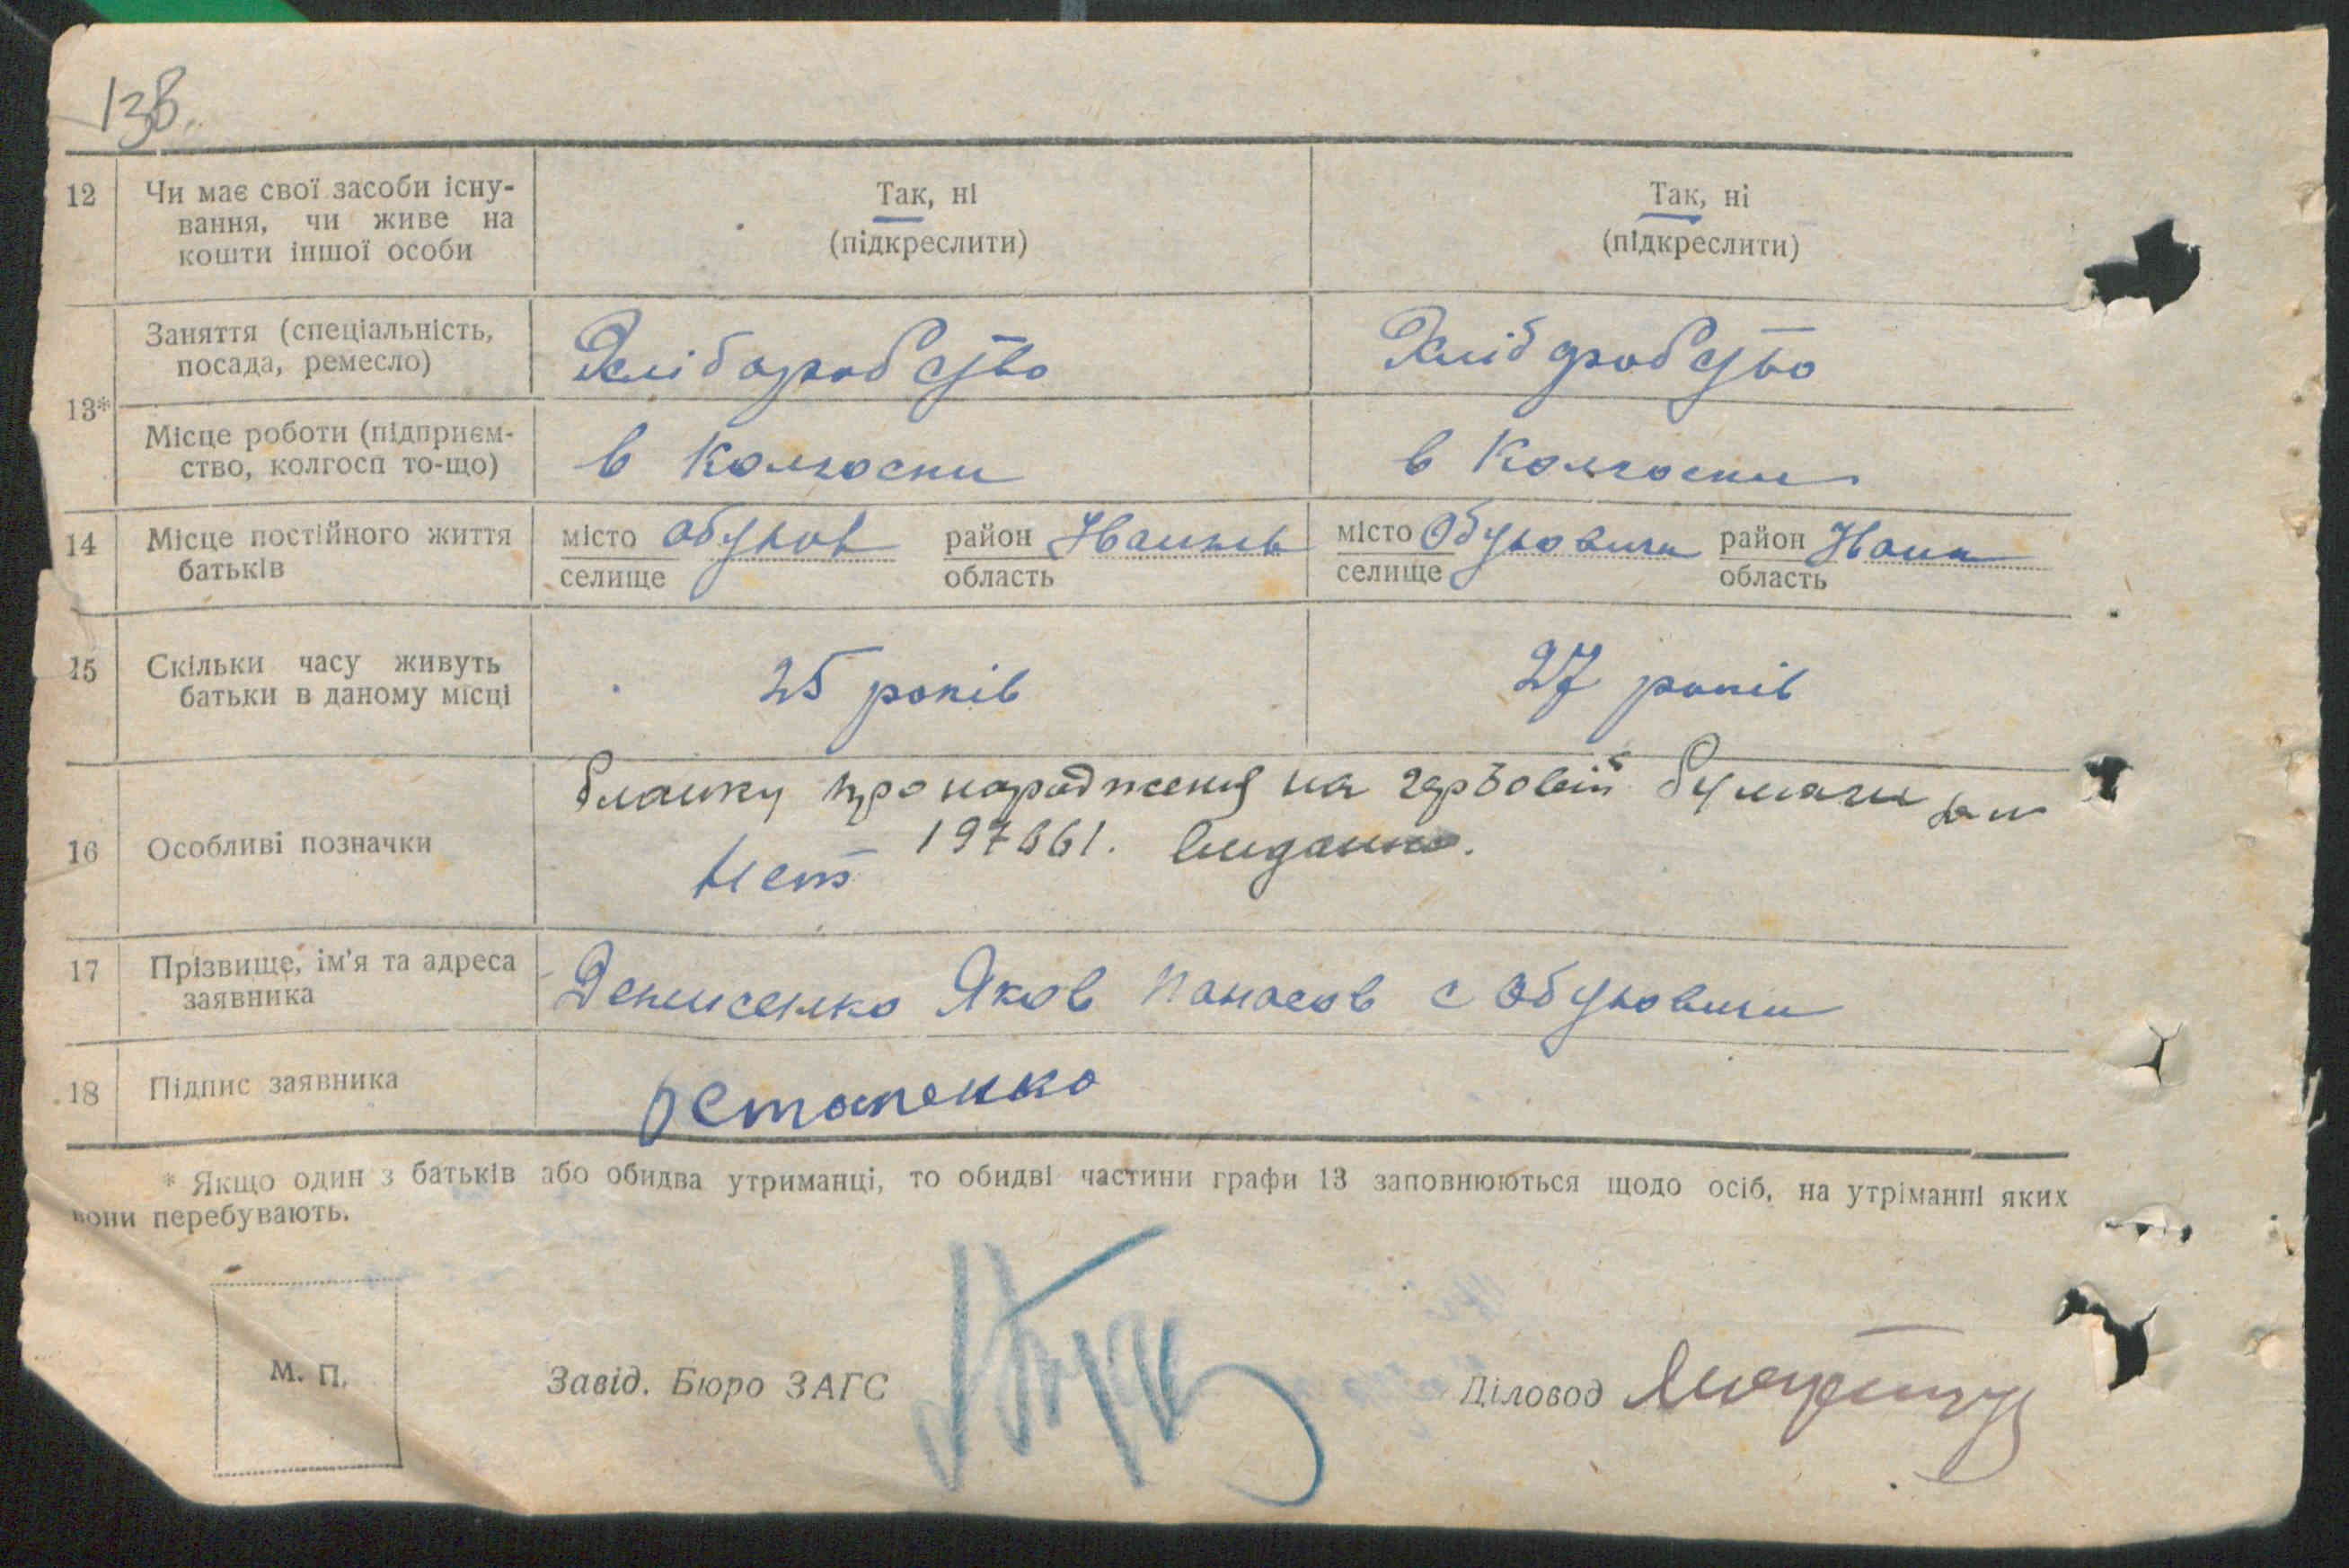 138.
12 Чи має свої засоби існу-
вання, чи живе на
кошти іншої особи
Так, ні
(підкреслити)
Так, ні
(підкреслити)
13*
Заняття (спеціальність,
посада, ремесло)
Хліборобство
Хлібробство
Місце роботи (підприєм-
ство, колгосп то-що)
в Колгоспи
в Колгоспи
14 Місце постійного життя
батьків
місто район
селище область
місто Обуховичи район
селище область
15 Скільки часу живуть
батьки в даному місці
25 років
27 років
16 Особливі позначки
бланку про народження на гербовій бумаги
197661. видано.
Нет
17 Прізвище, ім'я та адреса
заявника
Денисенко Яков Панасов с Обуховичи
18 Підпис заявника
Остапенко
* Якщо один з батьків або обидва утриманці, то обидві частини графи 13 заповнюються щодо осіб, на утріманні яких
вони перебувають.
М. П.
Завід. Бюро ЗАГС
Діловод